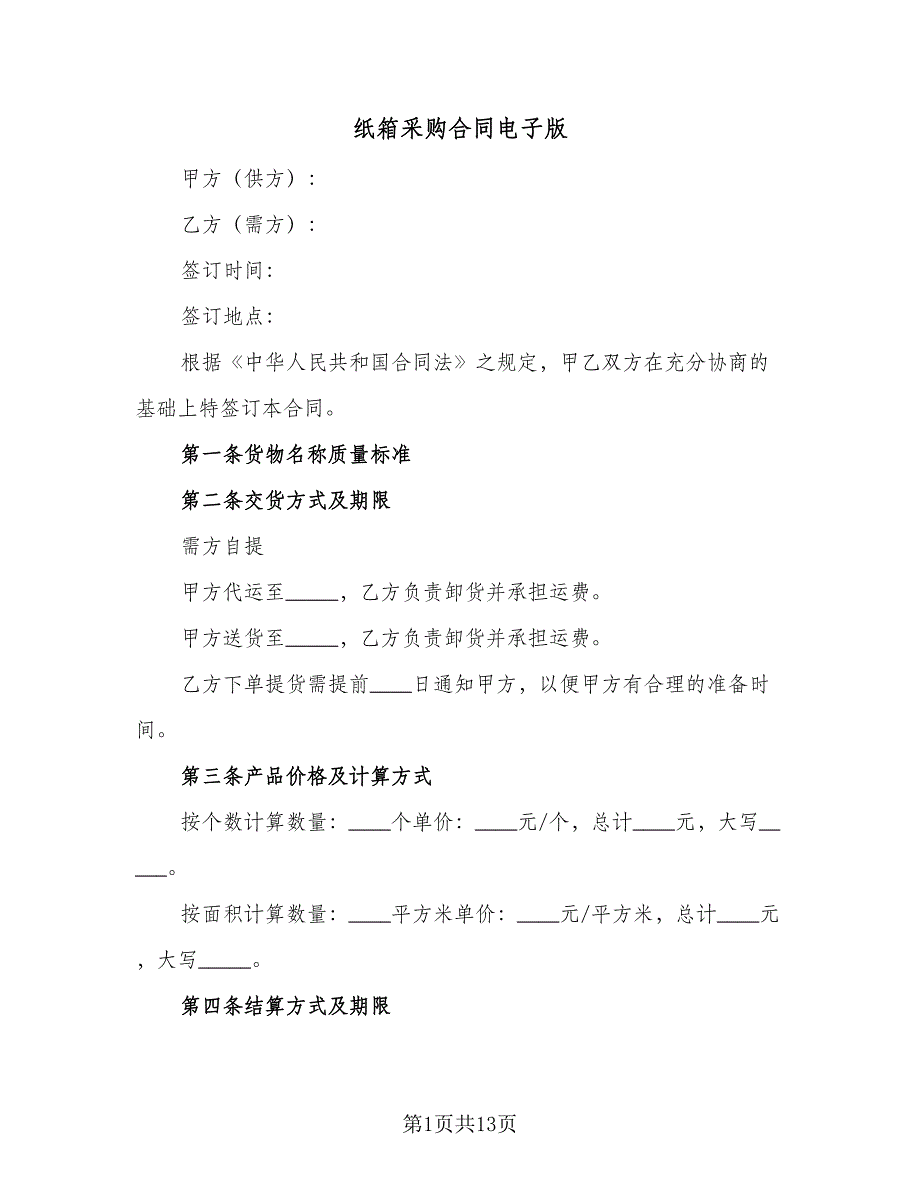 纸箱采购合同电子版
甲方（供方）：
乙方（需方）：
签订时间：
签订地点：
根据《中华人民共和国合同法》之规定，甲乙双方在充分协商的
基础上特签订本合同。
第一条货物名称质量标准
第二条交货方式及期限
需方自提
甲方代运至_____，乙方负责卸货并承担运费。
甲方送货至_____，乙方负责卸货并承担运费。
乙方下单提货需提前____日通知甲方，以便甲方有合理的准备时
间。
第三条产品价格及计算方式
按个数计算数量：____个单价：____元/个，总计____元，大写__
___。
按面积计算数量：____平方米单价：____元/平方米，总计____元
，大写_____。
第四条结算方式及期限
第1页共13页